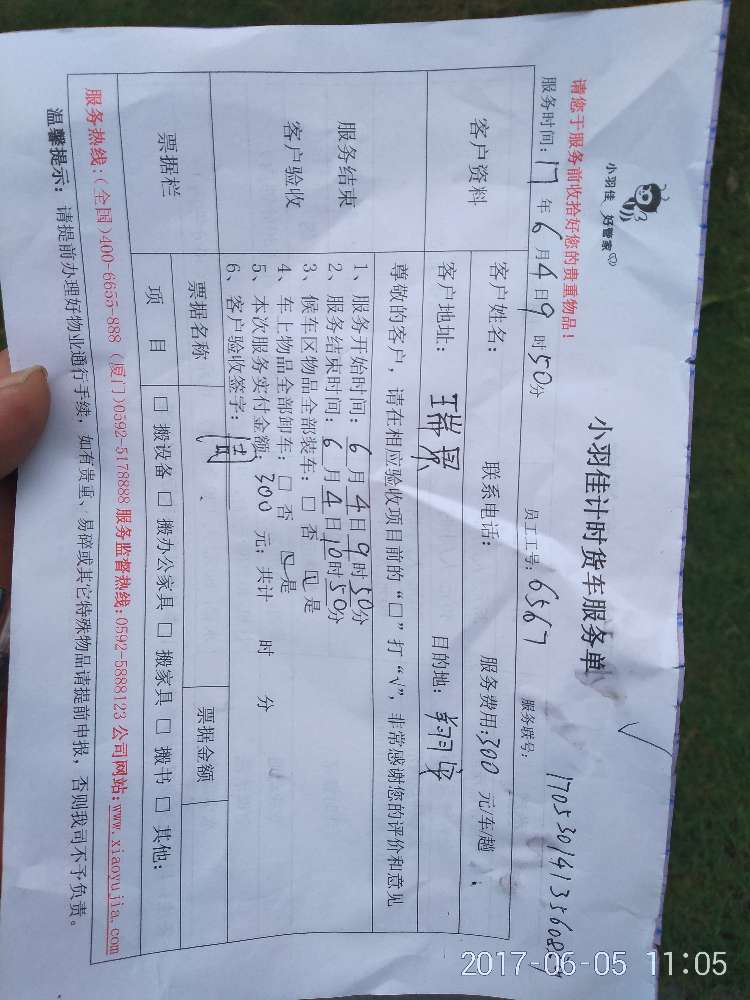 小羽佳 好管家
小羽佳计时货车服务单
请您于服务前收拾好您的贵重物品！
服务时间：17年6月4日9时50分 员工工号：6567 服务联号：
客户资料
客户姓名： 联系电话： 服务费用：300元/车/趟
客户地址： 瑞景 目的地： 翔安
服务结束
客户验收
尊敬的客户，请在相应验收项目前的“□”打“√”，非常感谢您的评价和意见
1、服务开始时间：6月4日9时50分
2、服务结束时间：6月4日10时50分
3、候车区物品全部装车：□否 ☑是
4、车上物品全部卸车：□否 ☑是
5、本次服务实付金额：300元；共计 时 分
6、客户验收签字：
票据栏
票据名称 票据金额
项目 □搬设备 □搬办公家具 □搬家具 □搬书 □其他：
服务热线：(全国)400-6655-888 (厦门)0592-5178888 服务监督热线：0592-5888123 公司网站：www.xiaoyujia.com
温馨提示：请提前办理好物业通行手续，如有贵重、易碎或其它特殊物品请提前申报，否则我司不予负责。
2017-06-05 11:05